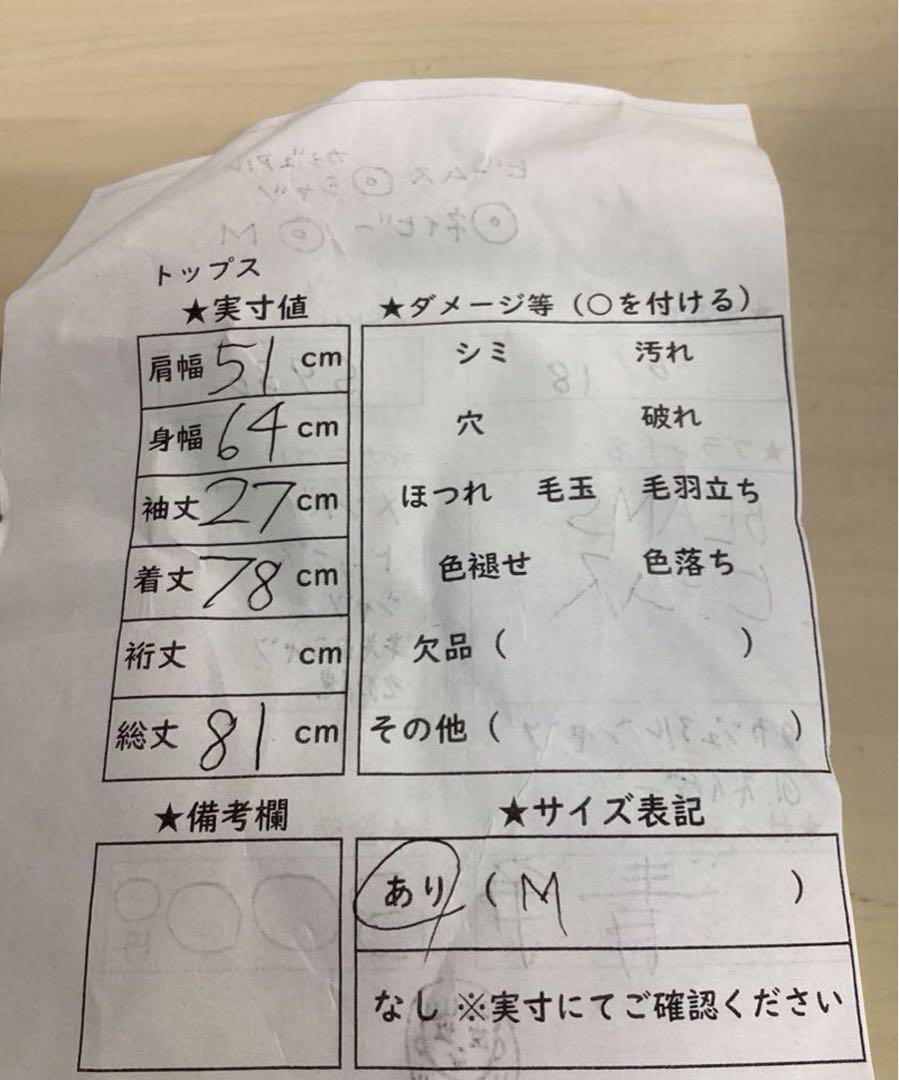 トップス
★実寸値
肩幅 51 cm
身幅 64 cm
袖丈 27 cm
着丈 78 cm
裄丈 cm
総丈 81 cm
★ダメージ等（○を付ける）
シミ 汚れ
穴 破れ
ほつれ 毛玉 毛羽立ち
色褪せ 色落ち
欠品（ ）
その他（ ）
★備考欄
★サイズ表記
あり（M ）
なし ※実寸にてご確認ください